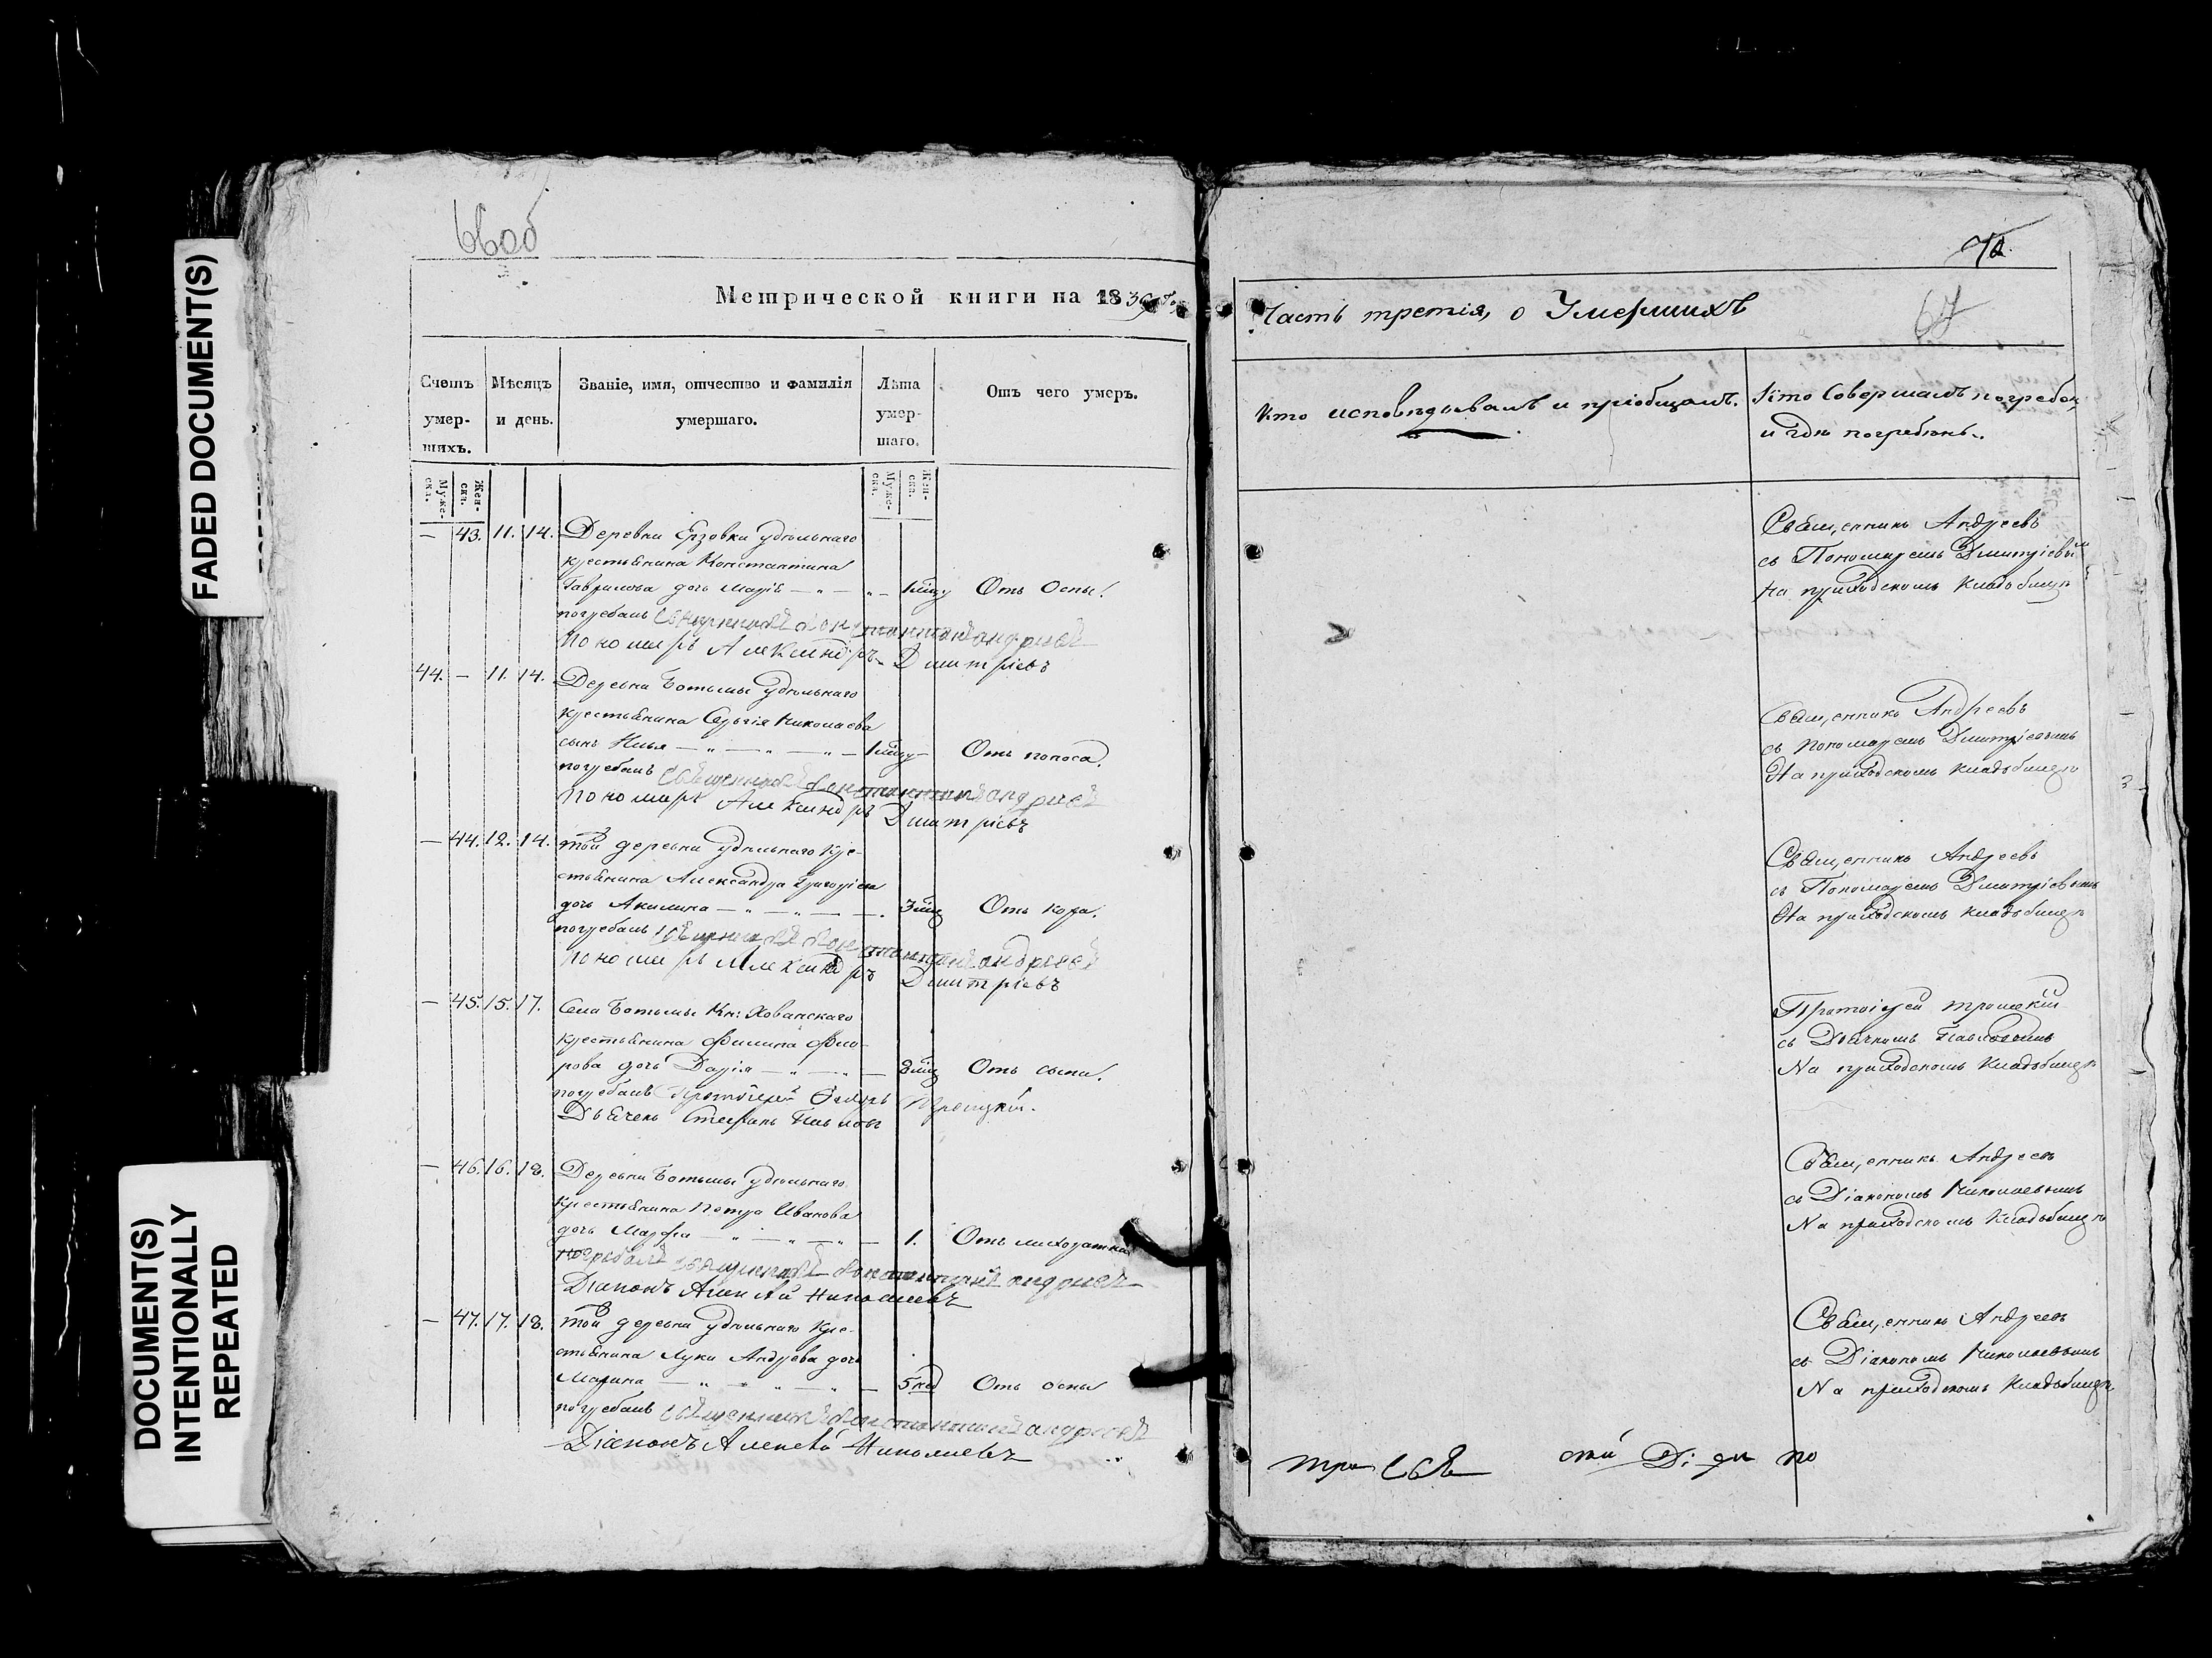 FADED DOCUMENT(S)
DOCUMENT(S)
INTENTIONALLY
REPEATED
66об
Метрической книги на 1839 го
Счетъ умер-шихъ.
Мѣсяцъ и день.
Званіе, имя, отчество и фамилія умершаго.
Лѣта умер-шаго.
Отъ чего умеръ.
Муже-ска.
Жен-ска.
Муже-ска.
Жен-ска.
— 43. 11. 14. Деревни Ерзовки удѣльнаго
крестьянина Константина
Гаврилова дочь Марія — 1 мцу Отъ Оспы.
погребалъ Священникъ Константинъ Андреевъ
Пономарь Александръ Дмитріевъ
44. — 11. 14. Деревни Ботьмы Удѣльнаго
крестьянина Сергія Николаева
сынъ Илья — 1 мцу Отъ поноса.
погребалъ Священникъ Константинъ Андреевъ
Пономарь Александръ Дмитріевъ
— 44. 12. 14. той деревни удѣльнаго Кре-
стьянина Александра Григоріева
дочь Акилина — 3 мц Отъ Кори.
погребалъ Священникъ Константинъ Андреевъ
Пономарь Александръ Дмитріевъ
— 45. 15. 17. Села Ботьмы Кн: Хованскаго
крестьянина Филипа Фло-
рова дочь Дарія — мц Отъ сыпи.
погребалъ Протоіерей Троицкій.
Дьячекъ Стефанъ Павловъ
— 46. 16. 18. Деревни Ботьмы удѣльнаго
крестьянина Петра Иванова
дочь Марфа — 1. Отъ лихорадки
погребалъ Священникъ Константинъ Андреевъ
Діаконъ Алексѣй Николаевъ
— 47. 17. 18. той деревни удѣльнаго Кре-
стьянина Луки Андрѣева дочь
Марина — 5 нед Отъ оспы
погребалъ Священникъ Константинъ Андреевъ
Діаконъ Алексѣй Николаевъ
67
Часть третія, о Умершихъ
Кто исповѣдывалъ и пріобщалъ.
Кто Совершалъ погребен,
и гдѣ погребенъ.
Священникъ Андреевъ
съ Пономаремъ Дмитріевым
На приходскомъ Кладбищѣ
Священникъ Андреевъ
съ Пономаремъ Дмитріевымъ
На приходскомъ кладбищѣ
Священникъ Андреевъ
съ Пономаремъ Дмитріевымъ
На приходскомъ кладбищѣ
Протоіерей Троицкій
съ Дьячкомъ Павловымъ
На приходскомъ Кладбищѣ
Священникъ Андреевъ
съ Діакономъ Николаевымъ
На приходскомъ Кладбищѣ
Священникъ Андреевъ
съ Діакономъ Николаевымъ
На приходскомъ Кладбищѣ
по